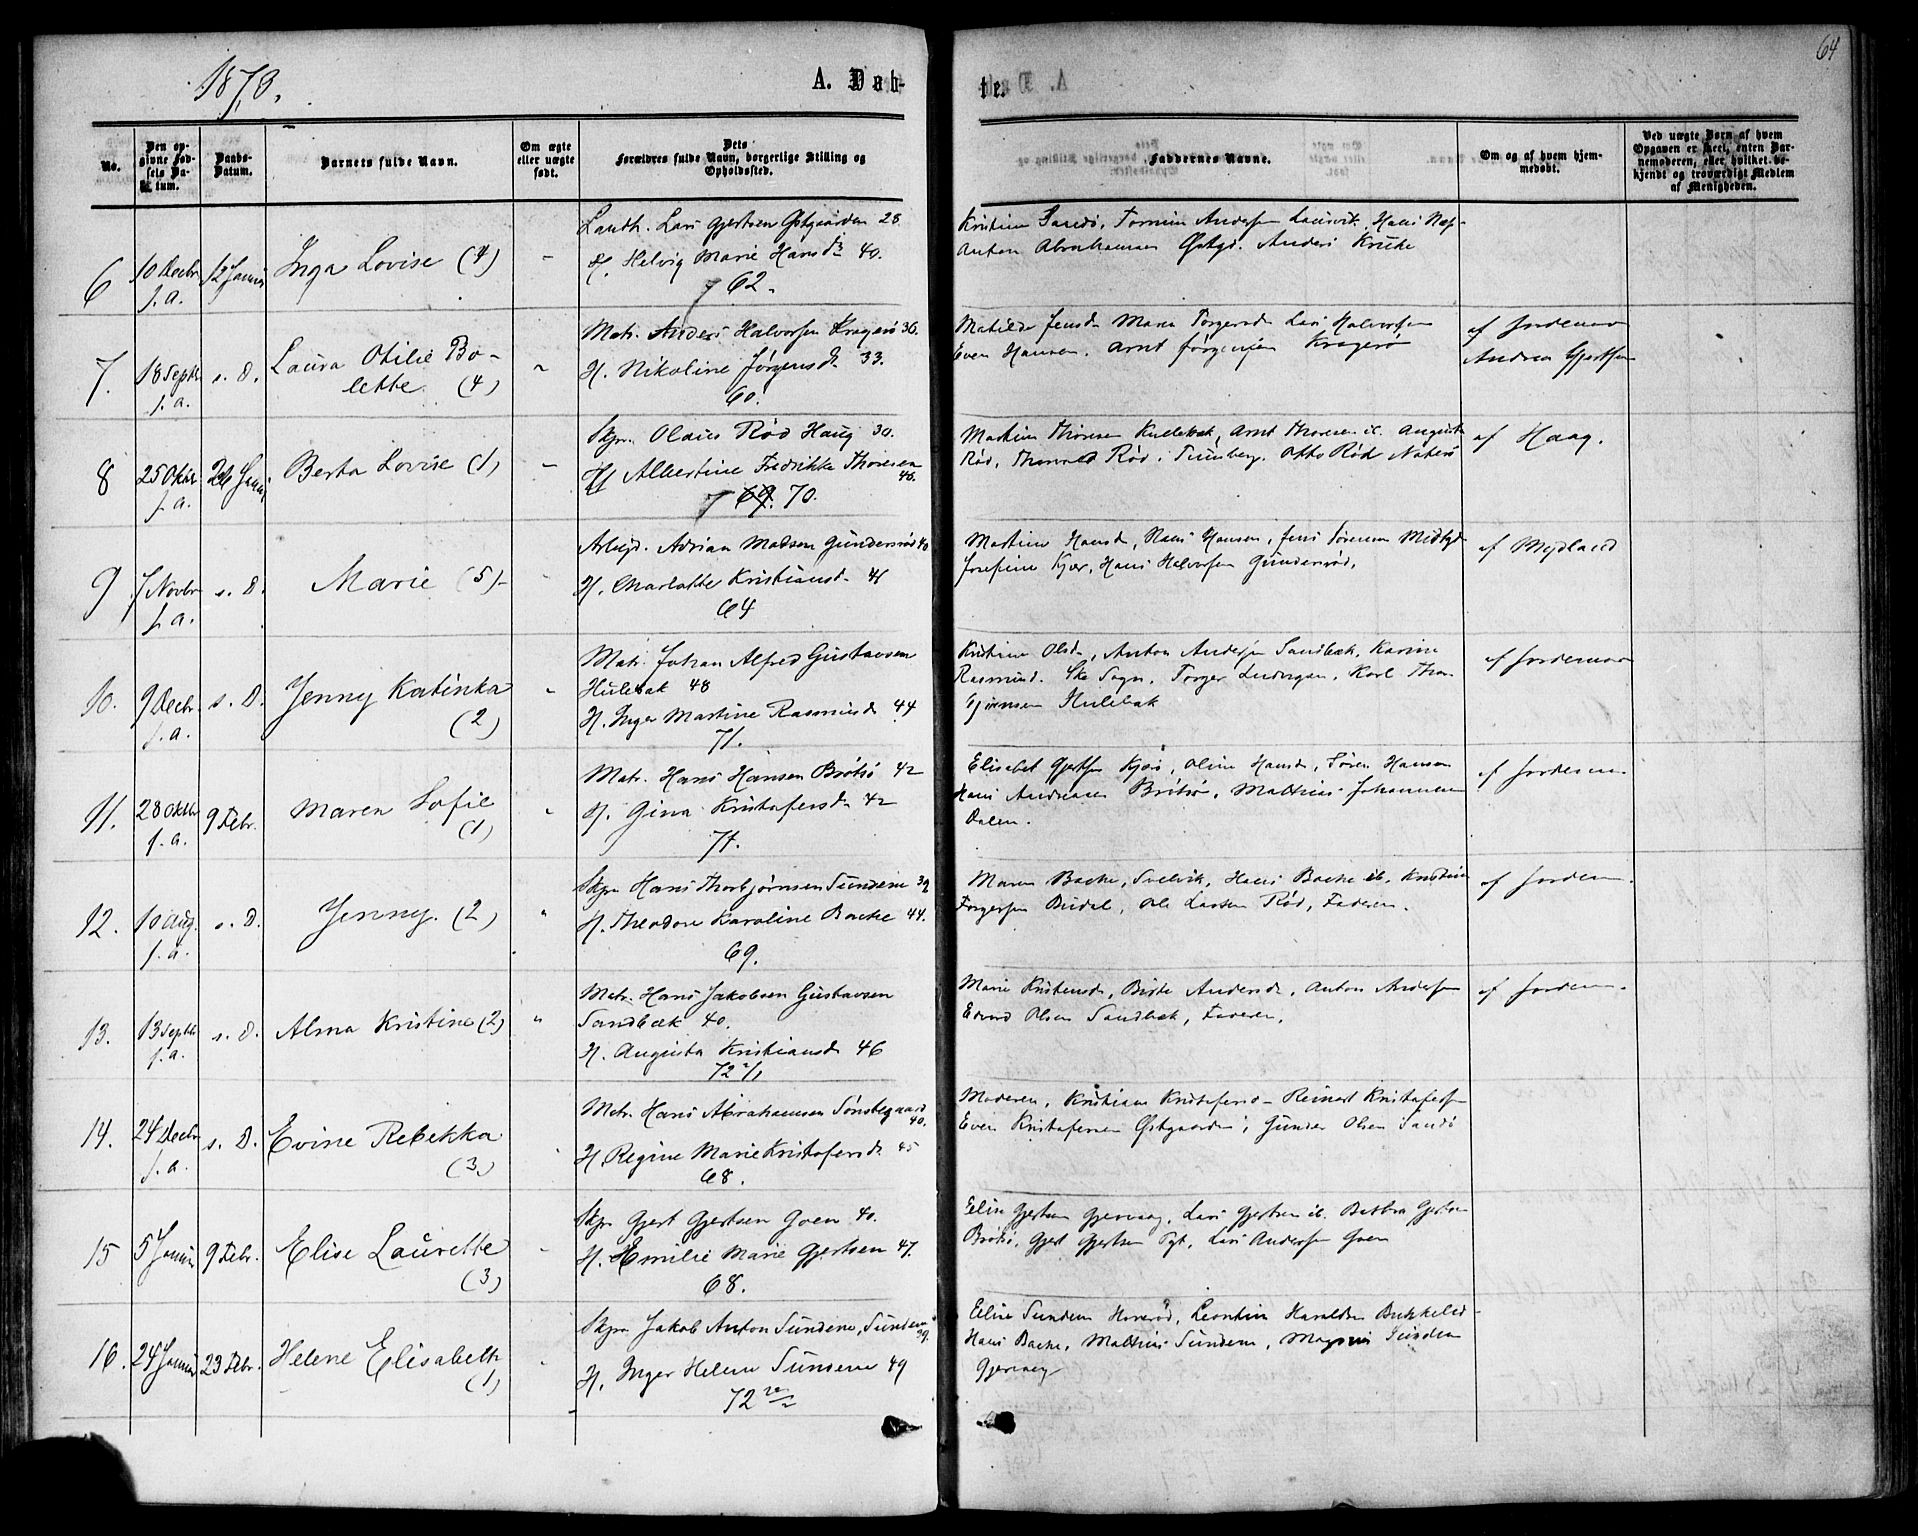 1873.
A. Døb-
te.
64
No.
Den op-
givne Fød-
sels Da-
tum.
Daabs-
Datum.
Barnets fulde Navn.
Om ægte
eller uægte
født.
Dets
Forældres fulde Navn, borgerlige Stilling og
Opholdssted.
Faddernes Navne.
Om og af hvem hjem-
medøbt.
Ved uægte Børn af hvem
Opgaven er skeet, enten Bar-
nemoderen, eller hvilket be-
kjendt og troværdigt Medlem
af Menigheden.
6
10 Decbr
f. a.
12 Januar
Inga Lovise (4)
Lars Gjertsen Østgaarden 28
H. Helvig Marie Hansd 40.
62.
Anton Abrahamsen Østgd. Anders
7.
18 Septb
f. a.
s. D.
Laura Otilie Bo-
lette (4)
Matr. Anders Halvorsen Kragerø 36.
H. Nikoline Jørgensd. 33.
60.
Matilde Jensd. Maren Torgersd. Lars Halvorsen
Even Hansen. Arnt Jørgensen Kragerø
af Jordemor
Andrea Gjertsen
8
25 Oktbr
f. a.
26 Januar
Berta Lovise (1)
Skpr. Olaus Rød Haug 30.
H. Albertine Fredrikke Thoresen
46.
69. 70.
Rød, Rød, Tunsberg. Otto Rød
af Haag.
9
7 Novbr
f. a.
s. D.
Marie (5)
Arbejd. Adrian Madsen Gundersrød 40
H. Charlotte Kristiansd. 41
64
Martine Hansd, Hans Hansen, Jens Sørensen
Josefine Kjær, Hans Halvorsen Gundersrød.
af Mydland
10.
9 Decbr.
f. a.
s. D.
Jenny Katinka
(2)
Matr. Johan Alfred Gustavsen
Hulebak 48
H. Inger Martine Rasmusd. 44
71.
Kristine Olsd., Anton Andersen Sandbæk, Karine
Rasmusd. Torger Karl Thor-
bjørnsen Hulebak
af Jordemor
11.
28 Oktbr
f. a.
9 Febr.
Maren Sofie
(1)
Matr. Hans Hansen Brøtsø 42
H. Gina Kristofersd. 42
71.
Elisabet Gjertsen Kjær, Oline Hansd, Søren Hansen
Hans Andreasen Brøtsø, Mathias Johannesen
Dalen.
af Jordem.
12.
10 Aug.
f. a.
s. D.
Jenny. (2)
Skpr Hans Thorbjørnsen Sundene 39
H. Theodore Karoline Backe 44.
69.
Maren Backe, Svelvik, Hans Backe ib. Kristine
Torgersen Budal, Ole Larsen Rød, Faderen.
af Jordem.
13.
13 Septb
f. a.
s. D.
Alma Kristine (2)
Matr. Hans Jakobsen Gustavsen
Sandbæk 40.
H. Augusta Kristiansd 46
72 2/1
Marie Kristensd, Birte Andersd., Anton Andersen
Edvard Olsen Sandbæk, Faderen.
af Jordem.
14.
24 Decbr
f. a.
s. D.
Evine Rebekka
(3)
Matr. Hans Abrahamsen Sønstegaard
40.
H. Regine Marie Kristofersd. 45
68.
Moderen, Kristiane Kristofersd. Reinert Kristofersen
Even Kristofersen Østgaarden, Gunder Olsen Sandø
15
5 Januar
9 Febr.
Elise Laurette
(3)
Skpr Gjert Gjertsen Goen 40.
H. Emilie Marie Gjertsen 47.
68.
Eline Gjertsen Gjervaag, Lars Gjertsen ib. Barbra Gjertsen
Brøtsø, Gjert Gjertsen Lars Andersen Goen
16.
24 Januar
23 Febr.
Helene Elisabeth
(1)
Skpr Jakob Anton Sundene, Sundene
39.
H. Inger Helene Sundene 49
72
Eline Sundene Leontine Haraldsen
Hans Backe, Mathias Sundene, Magnus Sundene
Gjervaag